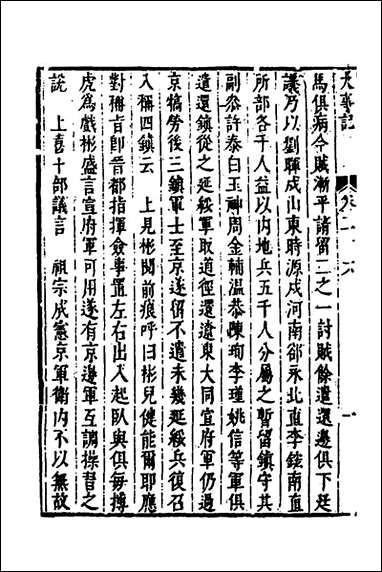 大事記 卷二十六 一
馬俱病今賊漸平請留二之一討賊餘遣還邊俱下廷
議乃以劉暉戍山東時源戍河南郤永北直李鋐南直
所部各千人益以内地兵五千人分屬之暫留鎮守其
副叅許泰白玉神周金輔溫恭陳珣李瑾姚信等軍俱
遣還鎮從之延綏軍取道徑還遼東大同宣府軍仍過
京犒勞後三鎮軍士至京遂留不遣未幾延綏兵復召
入稱四鎮云 上見彬閱前痕呼曰彬兒健能爾耶應
對稱旨卽晉都指揮僉事置左右出入起臥與俱每搏
虎爲戲彬盛言宣府軍可用遂有京邊軍互調操習之
說 上喜十部議言 祖宗成憲京軍衛内不以無故